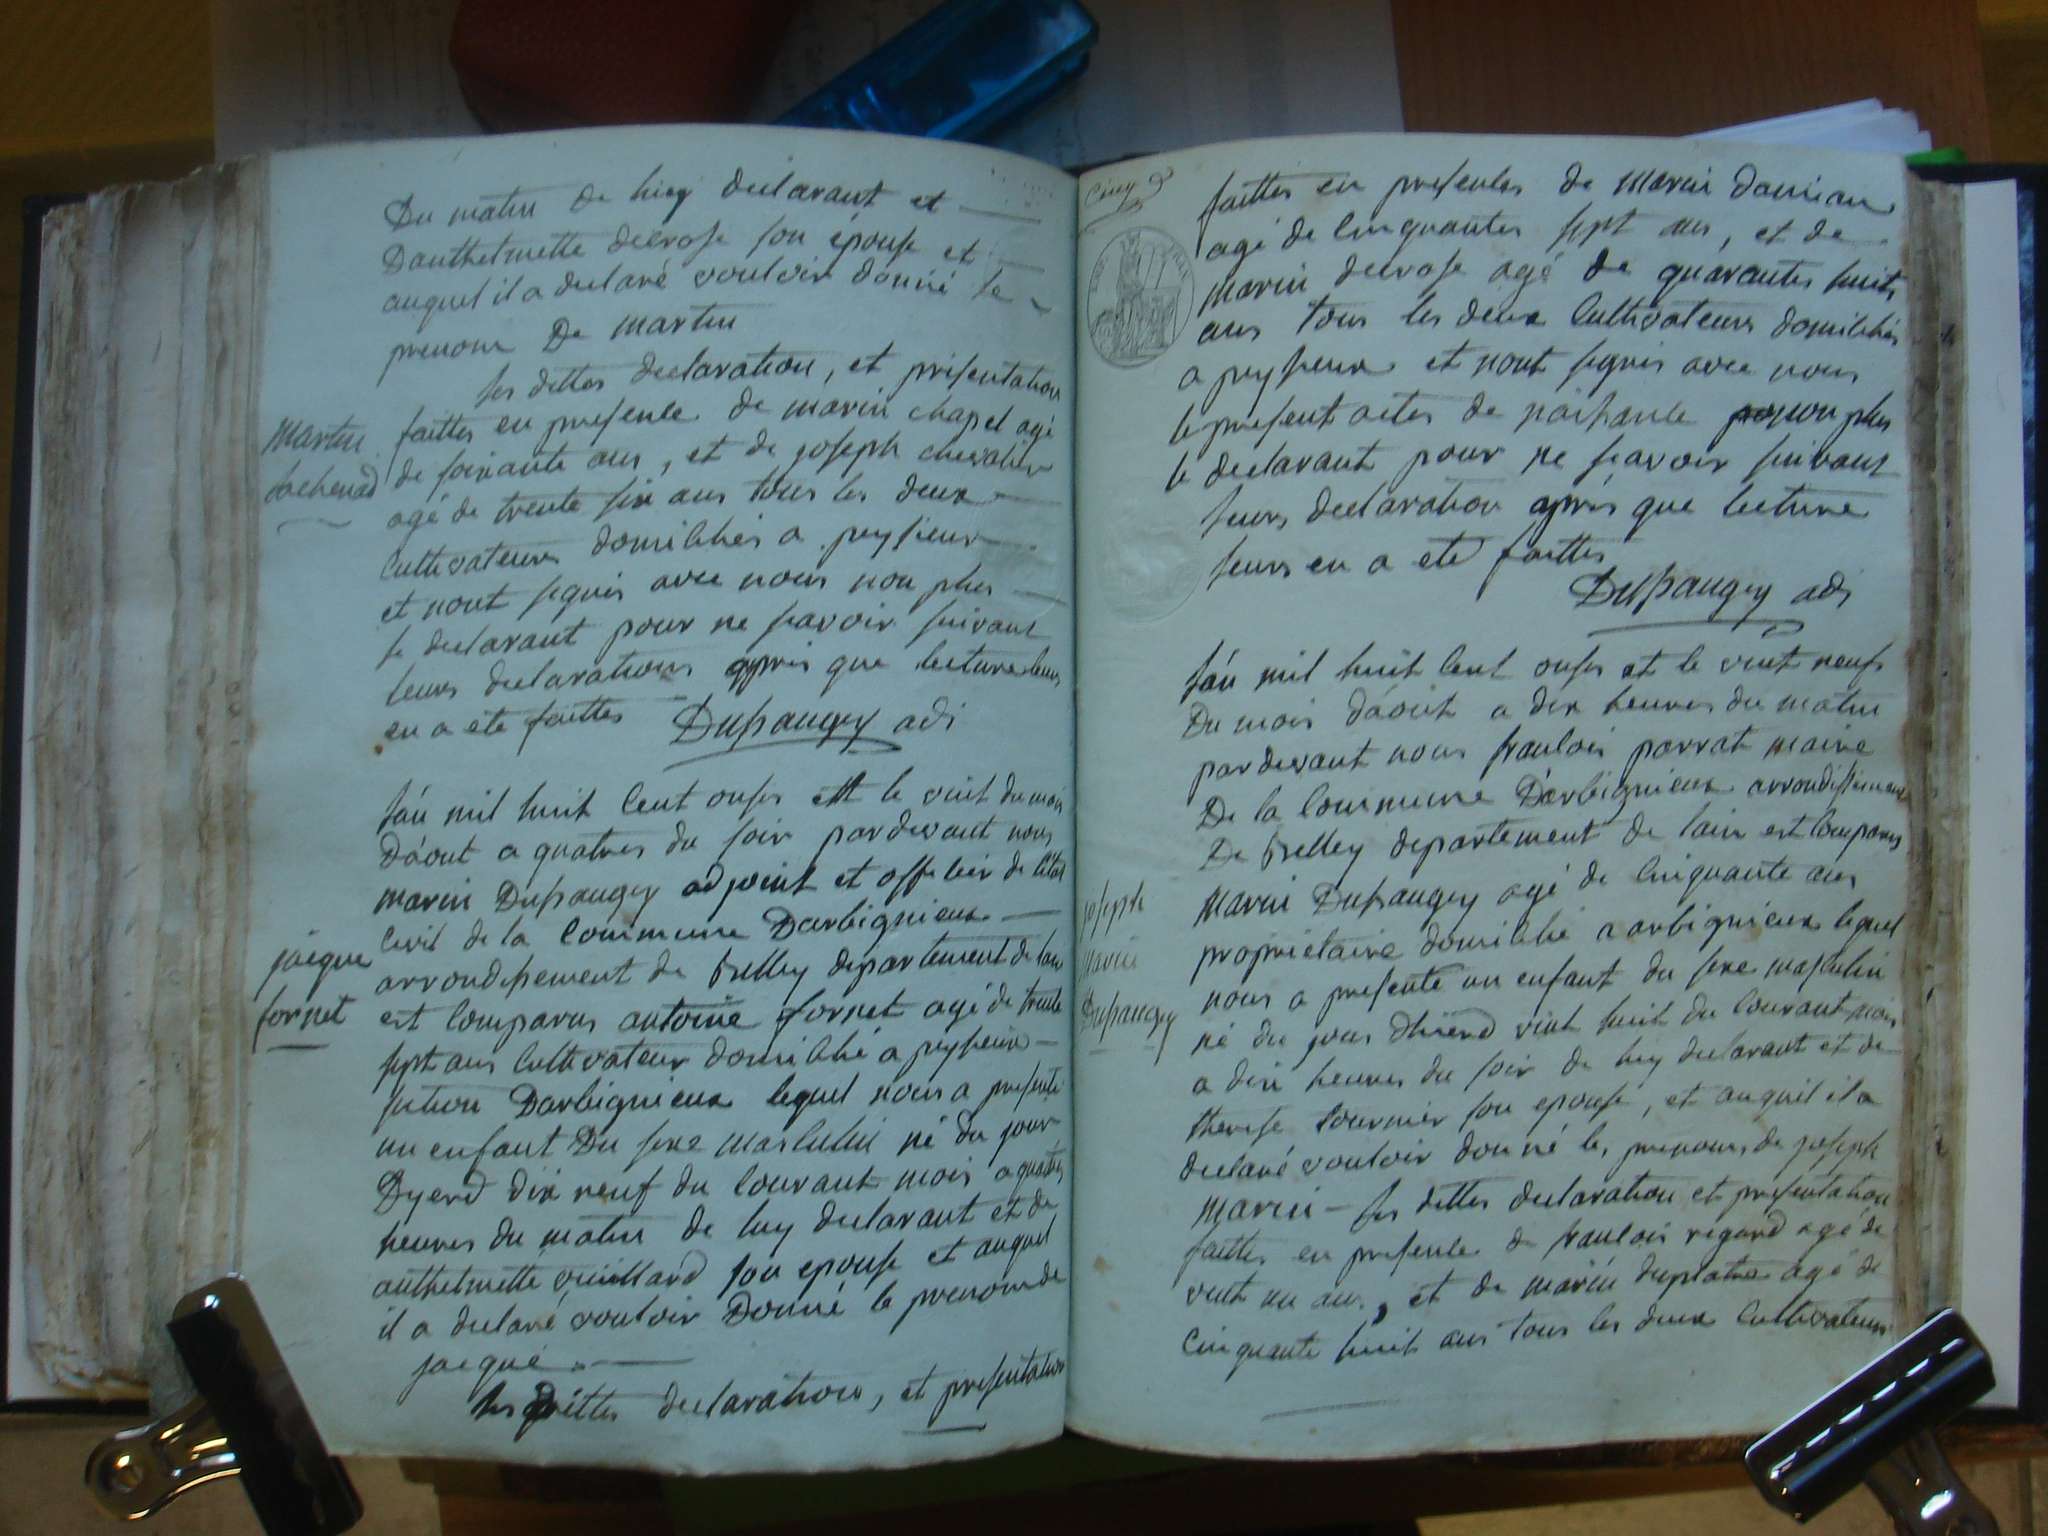 Du matin de luy declarant et
Danthelmette decrose son épouse et
auquel il a declaré vouloir donné le
prenom De martin
les dittes declaration, et présentation
Martin
faittes en presence de marin chapel agé
de soixante ans, et de joseph chevalier
agé de trente six ans tous les deux
cultivateurs domiciliés a peysieux
et nont signés avec nous non plus
le declarant pour ne savoir suivant
leurs declarations apprés que lecture leurs
en a eté faittes Dupaugey adj
L'an mil huit Cent onses et le vint du mois
D'aout a quatres du soir pardevant nous
marin Dupaugey adjoint et officier de l'état
Civil de la Commune Darbignieux
jacque
fornet
arrondissement de Belley departement de lain
est Comparus antoine fornet agé de trente
sept ans Cultivateur domicilié a peysieux
sction Darbignieux lequel nous a presenté
un enfant Du sexe masculin né du jour
Dyerd dix neuf du Courant mois a quatres
heures du matin de luy declarant et de
anthelmette vuillard son epouse et auquel
il a declaré vouloir Donné le prenom de
jacque
les dittes declaration, et presentation
Cinq
faittes en presentes de Marin damian
agé de Cinquantes sept ans, et de
Marin decrose agé de quarantes huits
ans tous les deux Cultivateurs domiciliés
a peysieux et nont signés avec nous
le present actes de naissance non plus
le declarant pour ne savoir suivant
leurs declaration après que lecture
leurs en a eté faittes
Dupaugey adj
L'an mil huit Cent onses et le vint neufs
Du mois d'aout a dix heures du matin
pardevant nous francois parrat maire
De la Commune D'arbignieux arrondissement
De Belley departement de lain est Comparus
joseph
marin
Dupaugey
Marin Dupaugey agé de Cinquante ans
propriétaire domicilié a arbignieux lequel
nous a presenté un enfant du sexe masculin
né du jour dhierd vint huit du Courant mois
a dix heures du soir de luy declarant et de
therese tournier son epouse, et auquil il a
declaré vouloir donné les prenoms de joseph
marin - les dittes declaration et presentation
faittes en presence de francois regard agé de
vint un ans, et de marin duplatre agé de
Cinquante huit ans tous les deux Cultivateurs